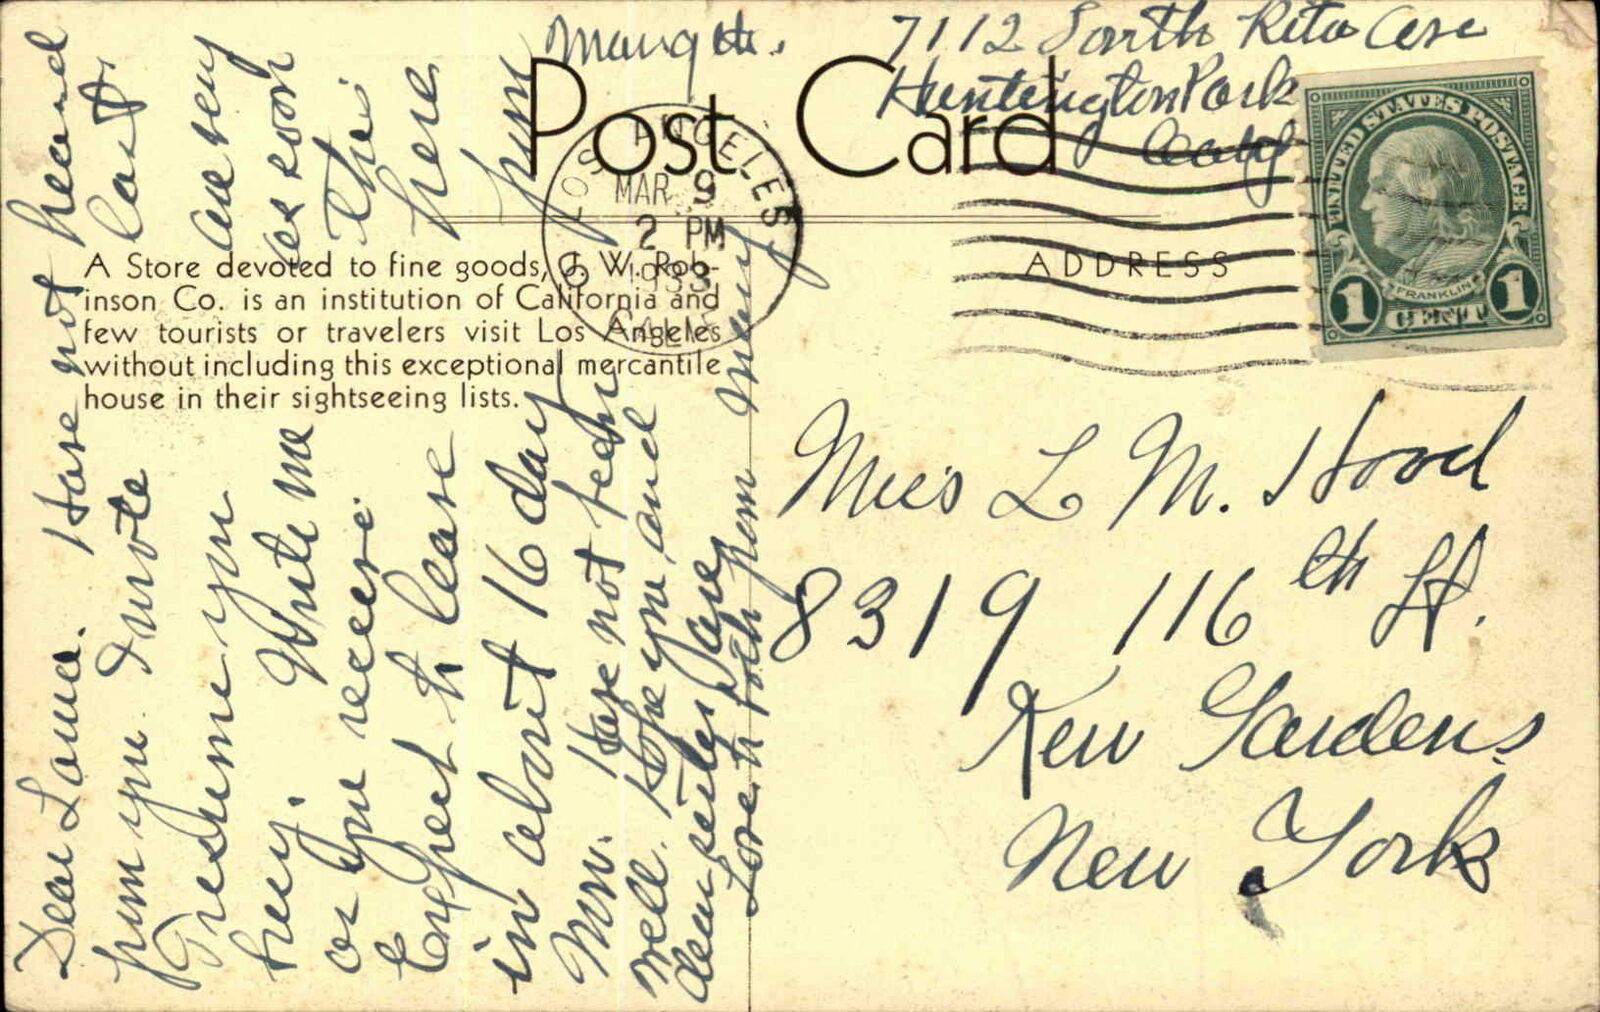 7112 South Rita Ave
Huntington Park
Calif
Post Card
LOS ANGELES
MAR 9
2 PM
1933
CALIF.
UNITED STATES POSTAGE
FRANKLIN
1 CENT 1
A Store devoted to fine goods, J. W. Rob-
inson Co. is an institution of California and
few tourists or travelers visit Los Angeles
without including this exceptional mercantile
house in their sightseeing lists.
ADDRESS
Miss L M. Hood
8319 116th St.
Kew Gardens
New York
Dear Laura. Have not heard
from you I wrote last.
Presume you are very
busy. Write me as soon
as you receive this
Expect to leave here
in about 16 days from
now. Have not been
well. Hope you and
dear sister are
Love to both from